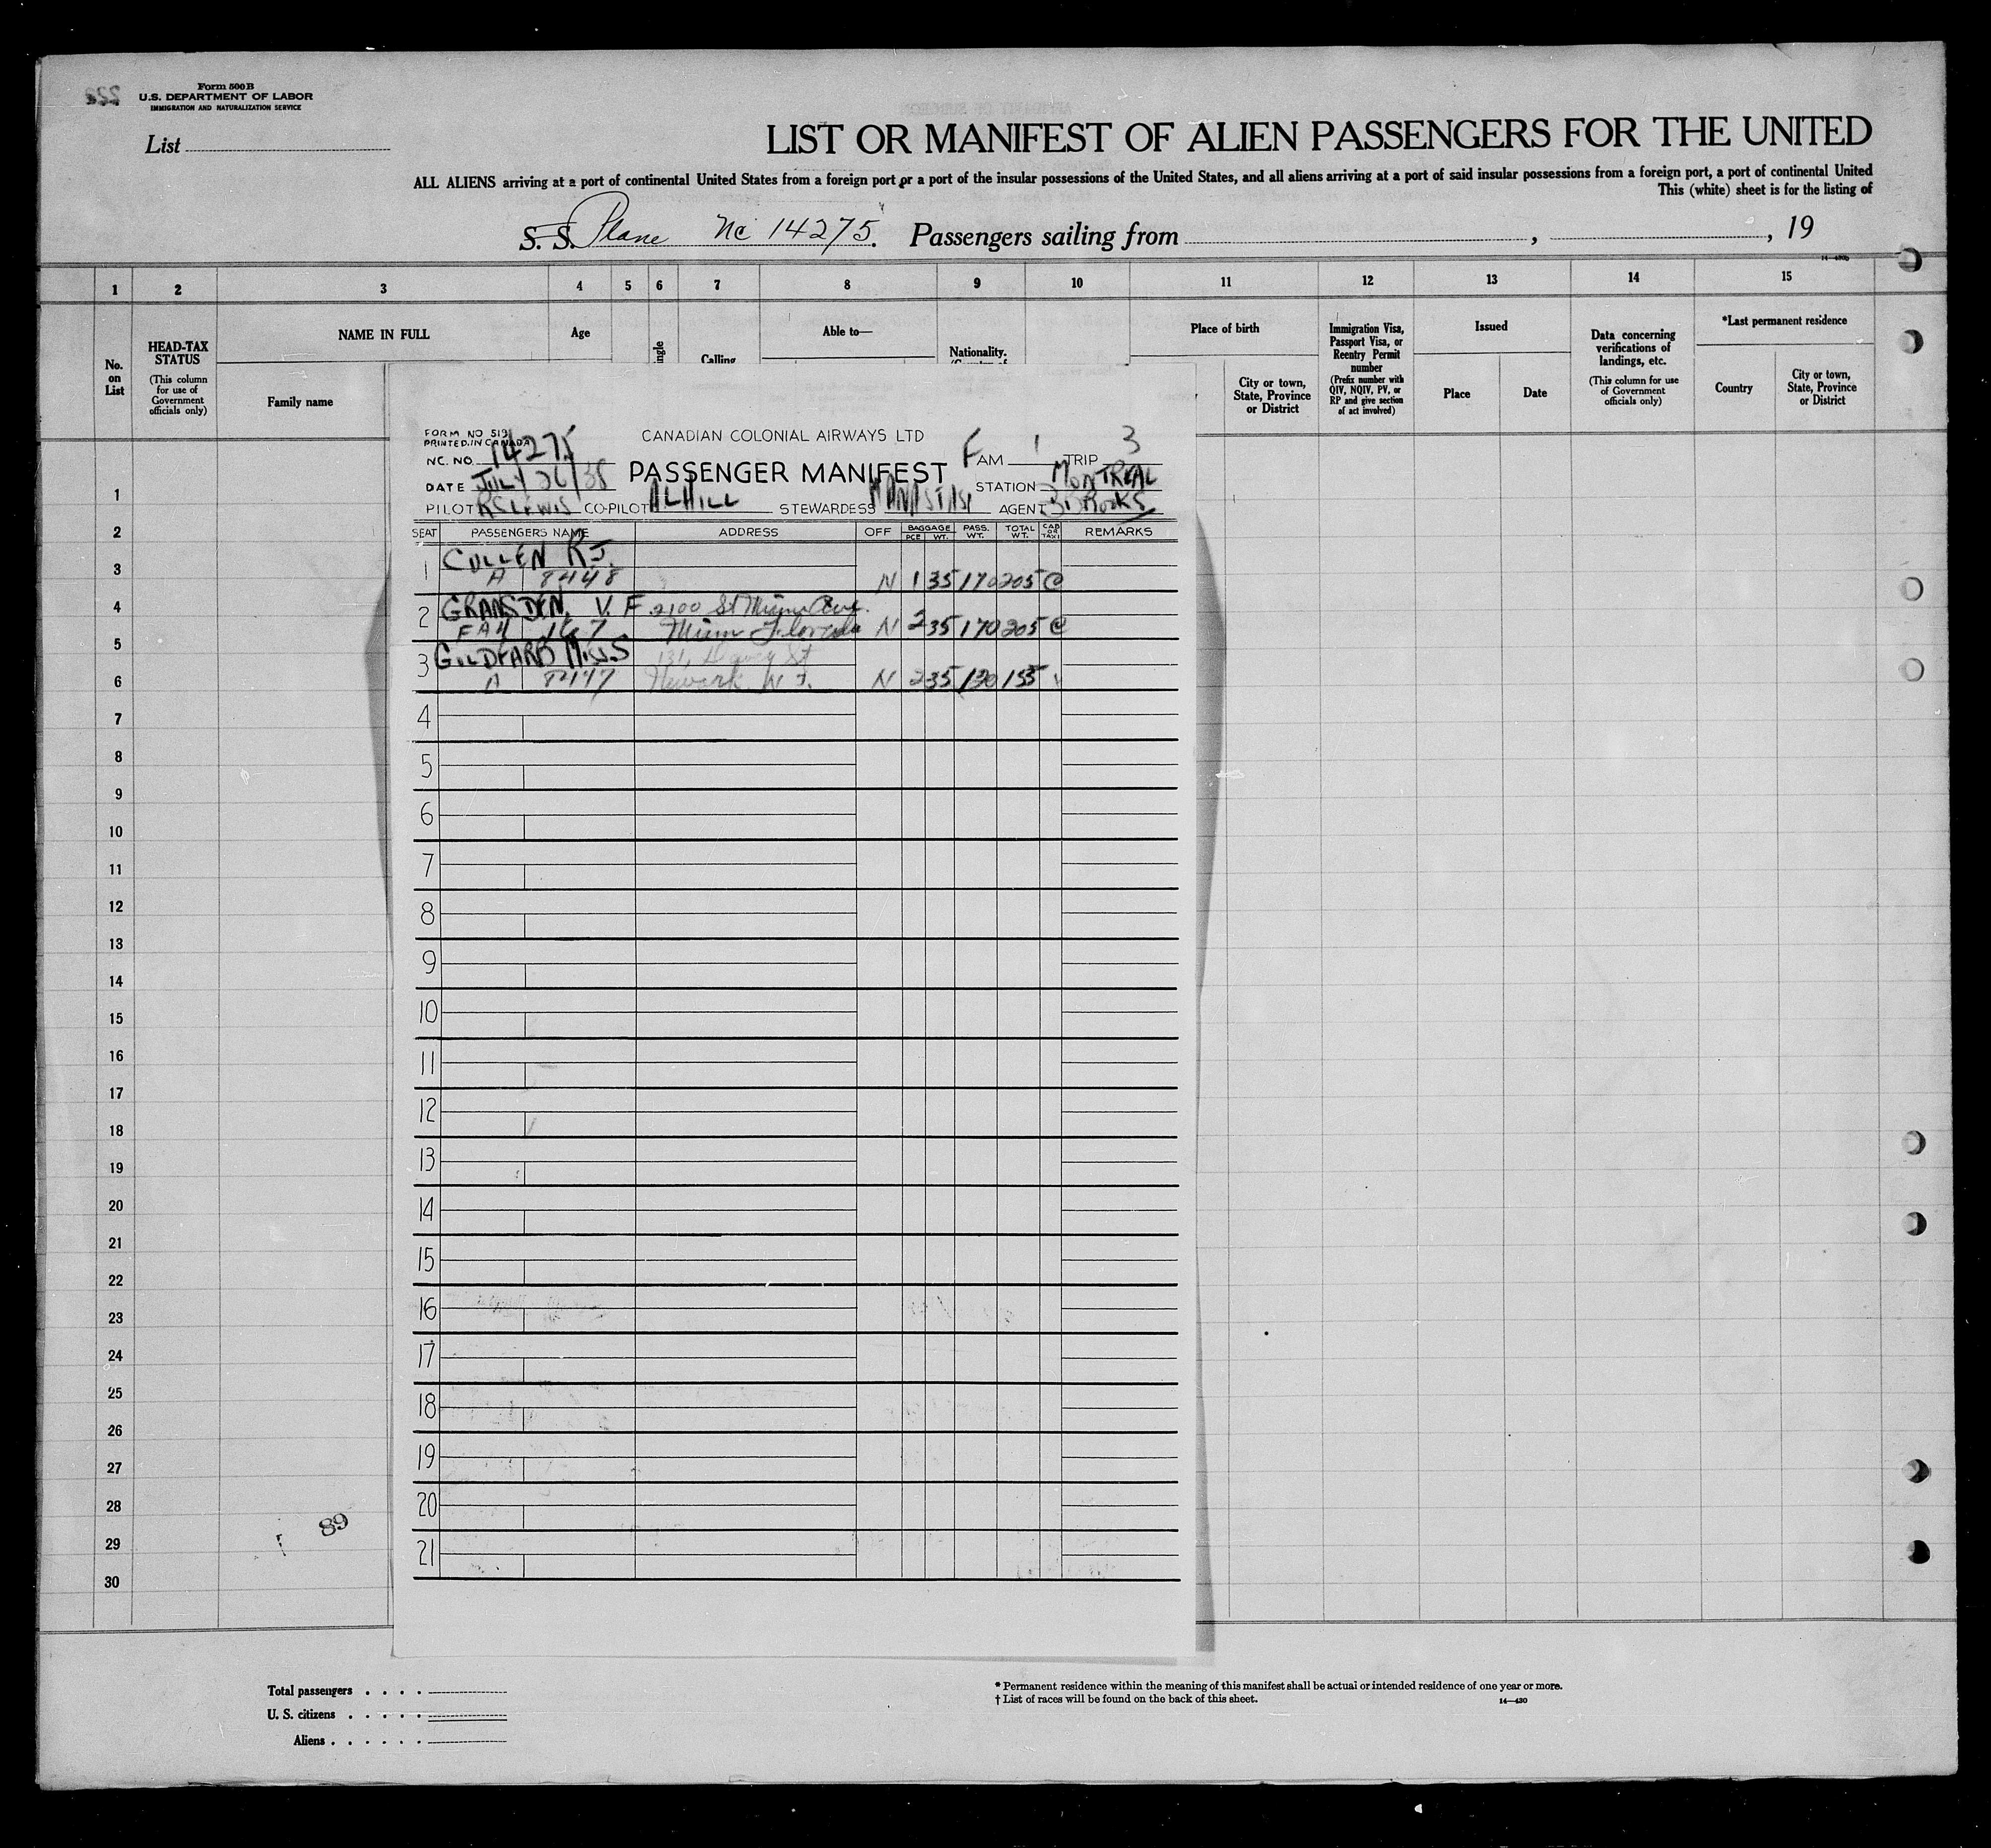 Form 500 B
U.S. DEPARTMENT OF LABOR
IMMIGRATION AND NATURALIZATION SERVICE
List
LIST OR MANIFEST OF ALIEN PASSENGERS FOR THE UNITED
ALL ALIENS arriving at a port of continental United States from a foreign port or a port of the insular possessions of the United States, and all aliens arriving at a port of said insular possessions from a foreign port, a port of continental United
This (white) sheet is for the listing of
S. S. Plane Nc 14275. Passengers sailing from , , 19
1 2 3 4 5 6 7 8 9 10 11 12 13 14 15
No. on List
HEAD-TAX STATUS
(This column for use of Government officials only)
NAME IN FULL
Family name
Age
Calling
Able to—
Nationality.
Place of birth
City or town, State, Province or District
Immigration Visa, Passport Visa, or Reentry Permit number
(Prefix number with QIV, NQIV, PV, or RP and give section of act involved)
Issued
Place
Date
Data concerning verifications of landings, etc.
(This column for use of Government officials only)
*Last permanent residence
Country
City or town, State, Province or District
FORM NO 519
PRINTED IN CANADA
CANADIAN COLONIAL AIRWAYS LTD
NC. NO. 14275
PASSENGER MANIFEST
FAM 1 TRIP 3
DATE JULY 26/38
STATION MONTREAL
PILOT RS LEWIS CO-PILOT AL HILL STEWARDESS AGENT B BROOKS
SEAT PASSENGERS NAME ADDRESS OFF BAGGAGE PCE WT. PASS. WT. TOTAL WT. CAB OR TAXI REMARKS
1 CULLEN R J.
A 8448 N 1 35 170 205 C
2 GRANSDEN. V. F. 2100 St Miami Ave.
FAH 167 Miami Florida N 2 35 170 205 C
3 MISS
A 8447 Newark N J. N 2 35 120 155
4
5
6
7
8
9
10
11
12
13
14
15
16
17
18
19
20
21
1
2
3
4
5
6
7
8
9
10
11
12
13
14
15
16
17
18
19
20
21
22
23
24
25
26
27
28
29
30
89
Total passengers
U. S. citizens
Aliens
* Permanent residence within the meaning of this manifest shall be actual or intended residence of one year or more.
† List of races will be found on the back of this sheet.
14—430